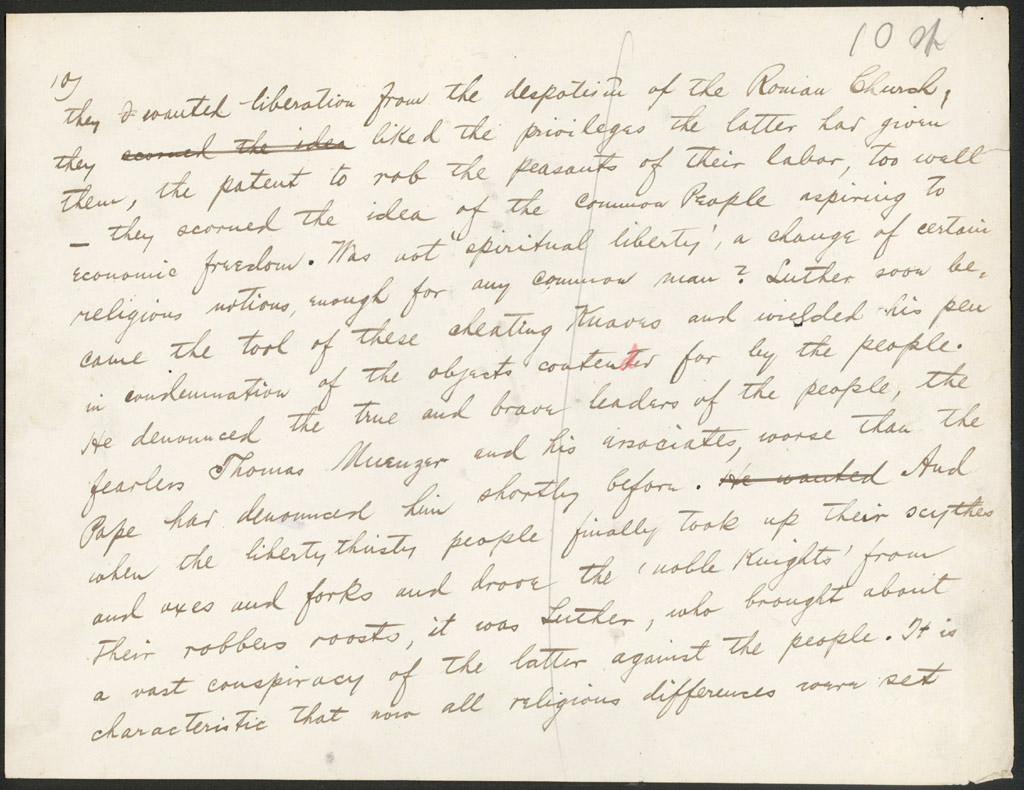 10
10)
they wanted liberation from the despotism of the Roman Church,
they scorned the idea liked the privileges the latter had given
them, the patent to rob the peasants of their labor, too well
— they scorned the idea of the common People aspiring to
economic freedom. Was not "spiritual liberty', a change of certain
religious notions, enough for any common man? Luther soon be-
came the tool of these cheating Knaves and wielded his pen
in condemnation of the objects contented for by the people.
He denounced the true and brave leaders of the people, the
fearless Thomas Muenzer and his associates, worse than the
Pope had denounced him shortly before. He wanted And
when the liberty thirsty people finally took up their scythes
and axes and forks and drove the 'noble Knights' from
their robbers roosts, it was Luther, who brought about
a vast conspiracy of the latter against the people. It is
characteristic that now all religious differences were set